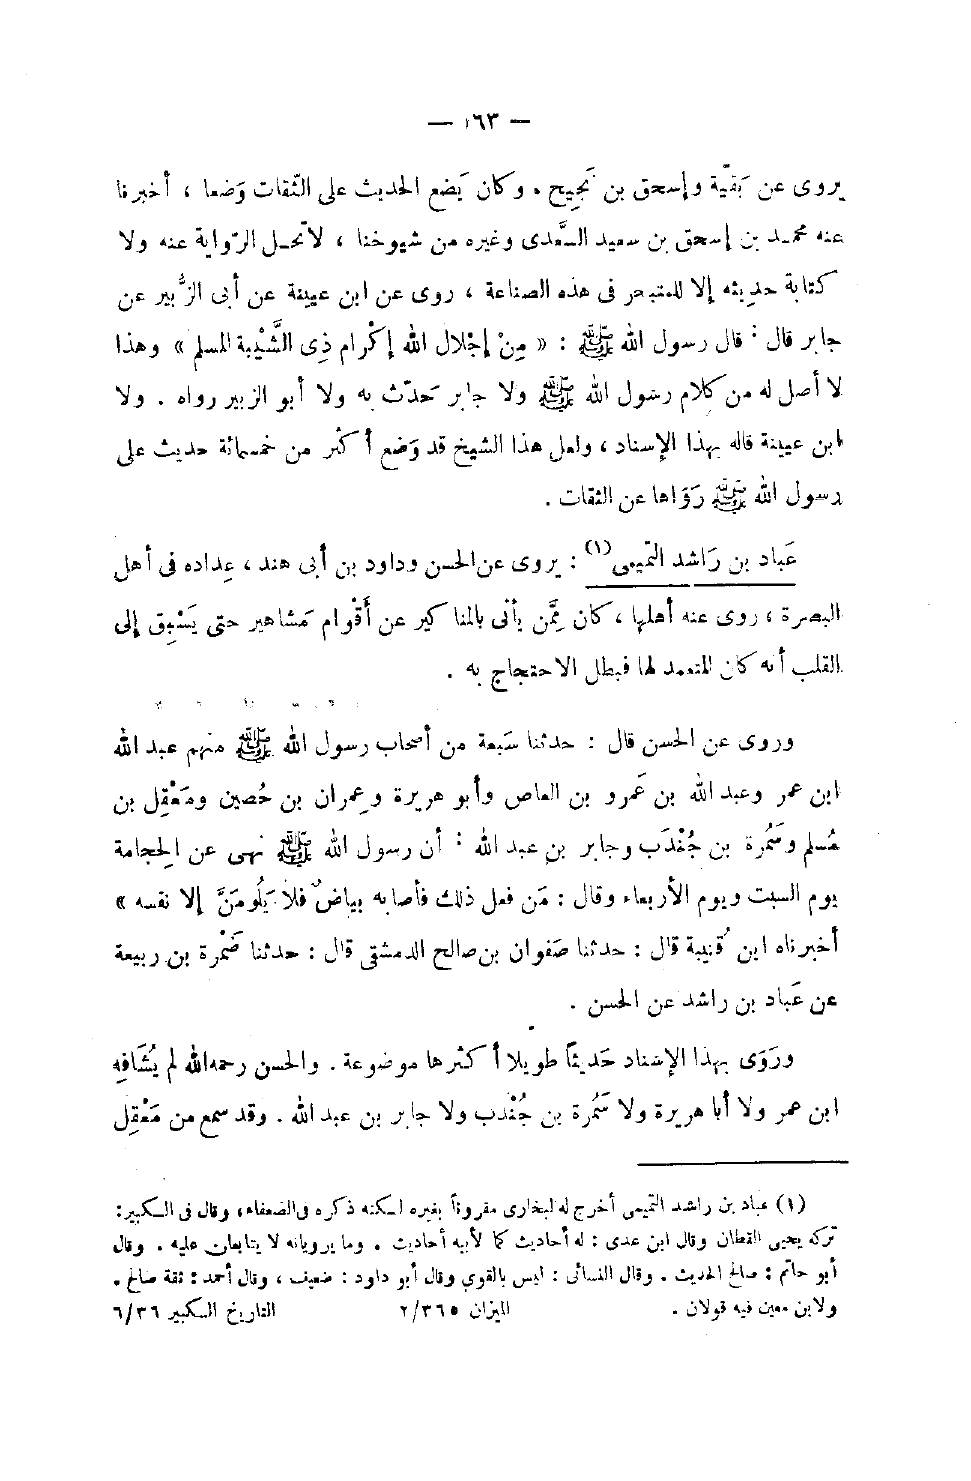 — ١٦٣ —
يروى عن بَقيَّة وإسحق بن نَجيح . وكان يَضع الحديث على الثّقات وَضعا ، أخبرنا
عنه محمد بن إسحق بن سعيد السَّعدى وغيره من شيوخنا ، لا تحل الرّواية عنه ولا
كتابة حديثه إلا للمتبحر فى هذه الصناعة ، روى عن ابن عيينة عن أبى الزُّبير عن
جابر قال : قال رسول الله ﷺ : « مِنْ إجْلال الله إكْرام ذِى الشَّيْبة المسلم » وهذا
لا أصل له من كلام رسول الله ﷺ ولا جابر حَدّث به ولا أبو الزبير رواه . ولا
ابن عيينة قاله بهذا الإسناد ، ولعل هذا الشيخ قد وَضع أكثر من خمسمائة حديث على
رسول الله ﷺ رَوَاها عن الثقات .
عَباد بن رَاشد التّميمى (١) : يروى عن الحسن وداود بن أبى هند ، عِداده فى أهل
البصرة ، روى عنه أهلها ، كان ممَّن يأتى بالمناكير عن أَقْوام مَشاهير حتى يَسْبِق إلى
القلب أنه كان المتعمد لها فبطل الاحتجاج به .
وروى عن الحسن قال : حدثنا سَبعة من أصحاب رسول الله ﷺ منهم عبد الله
ابن عمر وعبد الله بن عَمرو بن العاص وأبو هريرة وعِمران بن حُصين ومَعْقِل بن
مُسلم وسَمُرة بن جُنْدَب وجابر بن عبد الله : أن رسول الله ﷺ نهى عن الحِجامة
يوم السبت ويوم الأربعاء وقال : مَن فعل ذلك فأصابه بياضٌ فلا يَلُومَنَّ إلا نفسه »
أخبرناه ابن قُتيبة قال : حدثنا صَفوان بن صالح الدمشقى قال : حدثنا ضَمْرة بن ربيعة
عن عَباد بن راشد عن الحسن .
ورَوَى بهذا الإسْناد حَديثاً طويلا أكثرها موضوعة . والحسن رحمه الله لم يُشَافِه
ابن عمر ولا أبا هريرة ولا سَمُرة بن جُنْدب ولا جابر بن عبد الله . وقد سمع من مَعْقِل
(١) عباد بن راشد التميمى أخرج له البخارى مقروناً بغيره لكنه ذكره فى الضعفاء ، وقال فى الكبير :
تركه يحيى القطان وقال ابن عدى : له أحاديث كما لأبيه أحاديث . وما يرويانه لا يتابعان عليه . وقال
أبو حاتم : صالح الحديث . وقال النسائى : ليس بالقوي وقال أبو داود : ضعيف ، وقال أحمد : ثقة صالح .
ولابن معين فيه قولان . الميزان ٢/٣٦٥ التاريخ الكبير ٦/٣٦